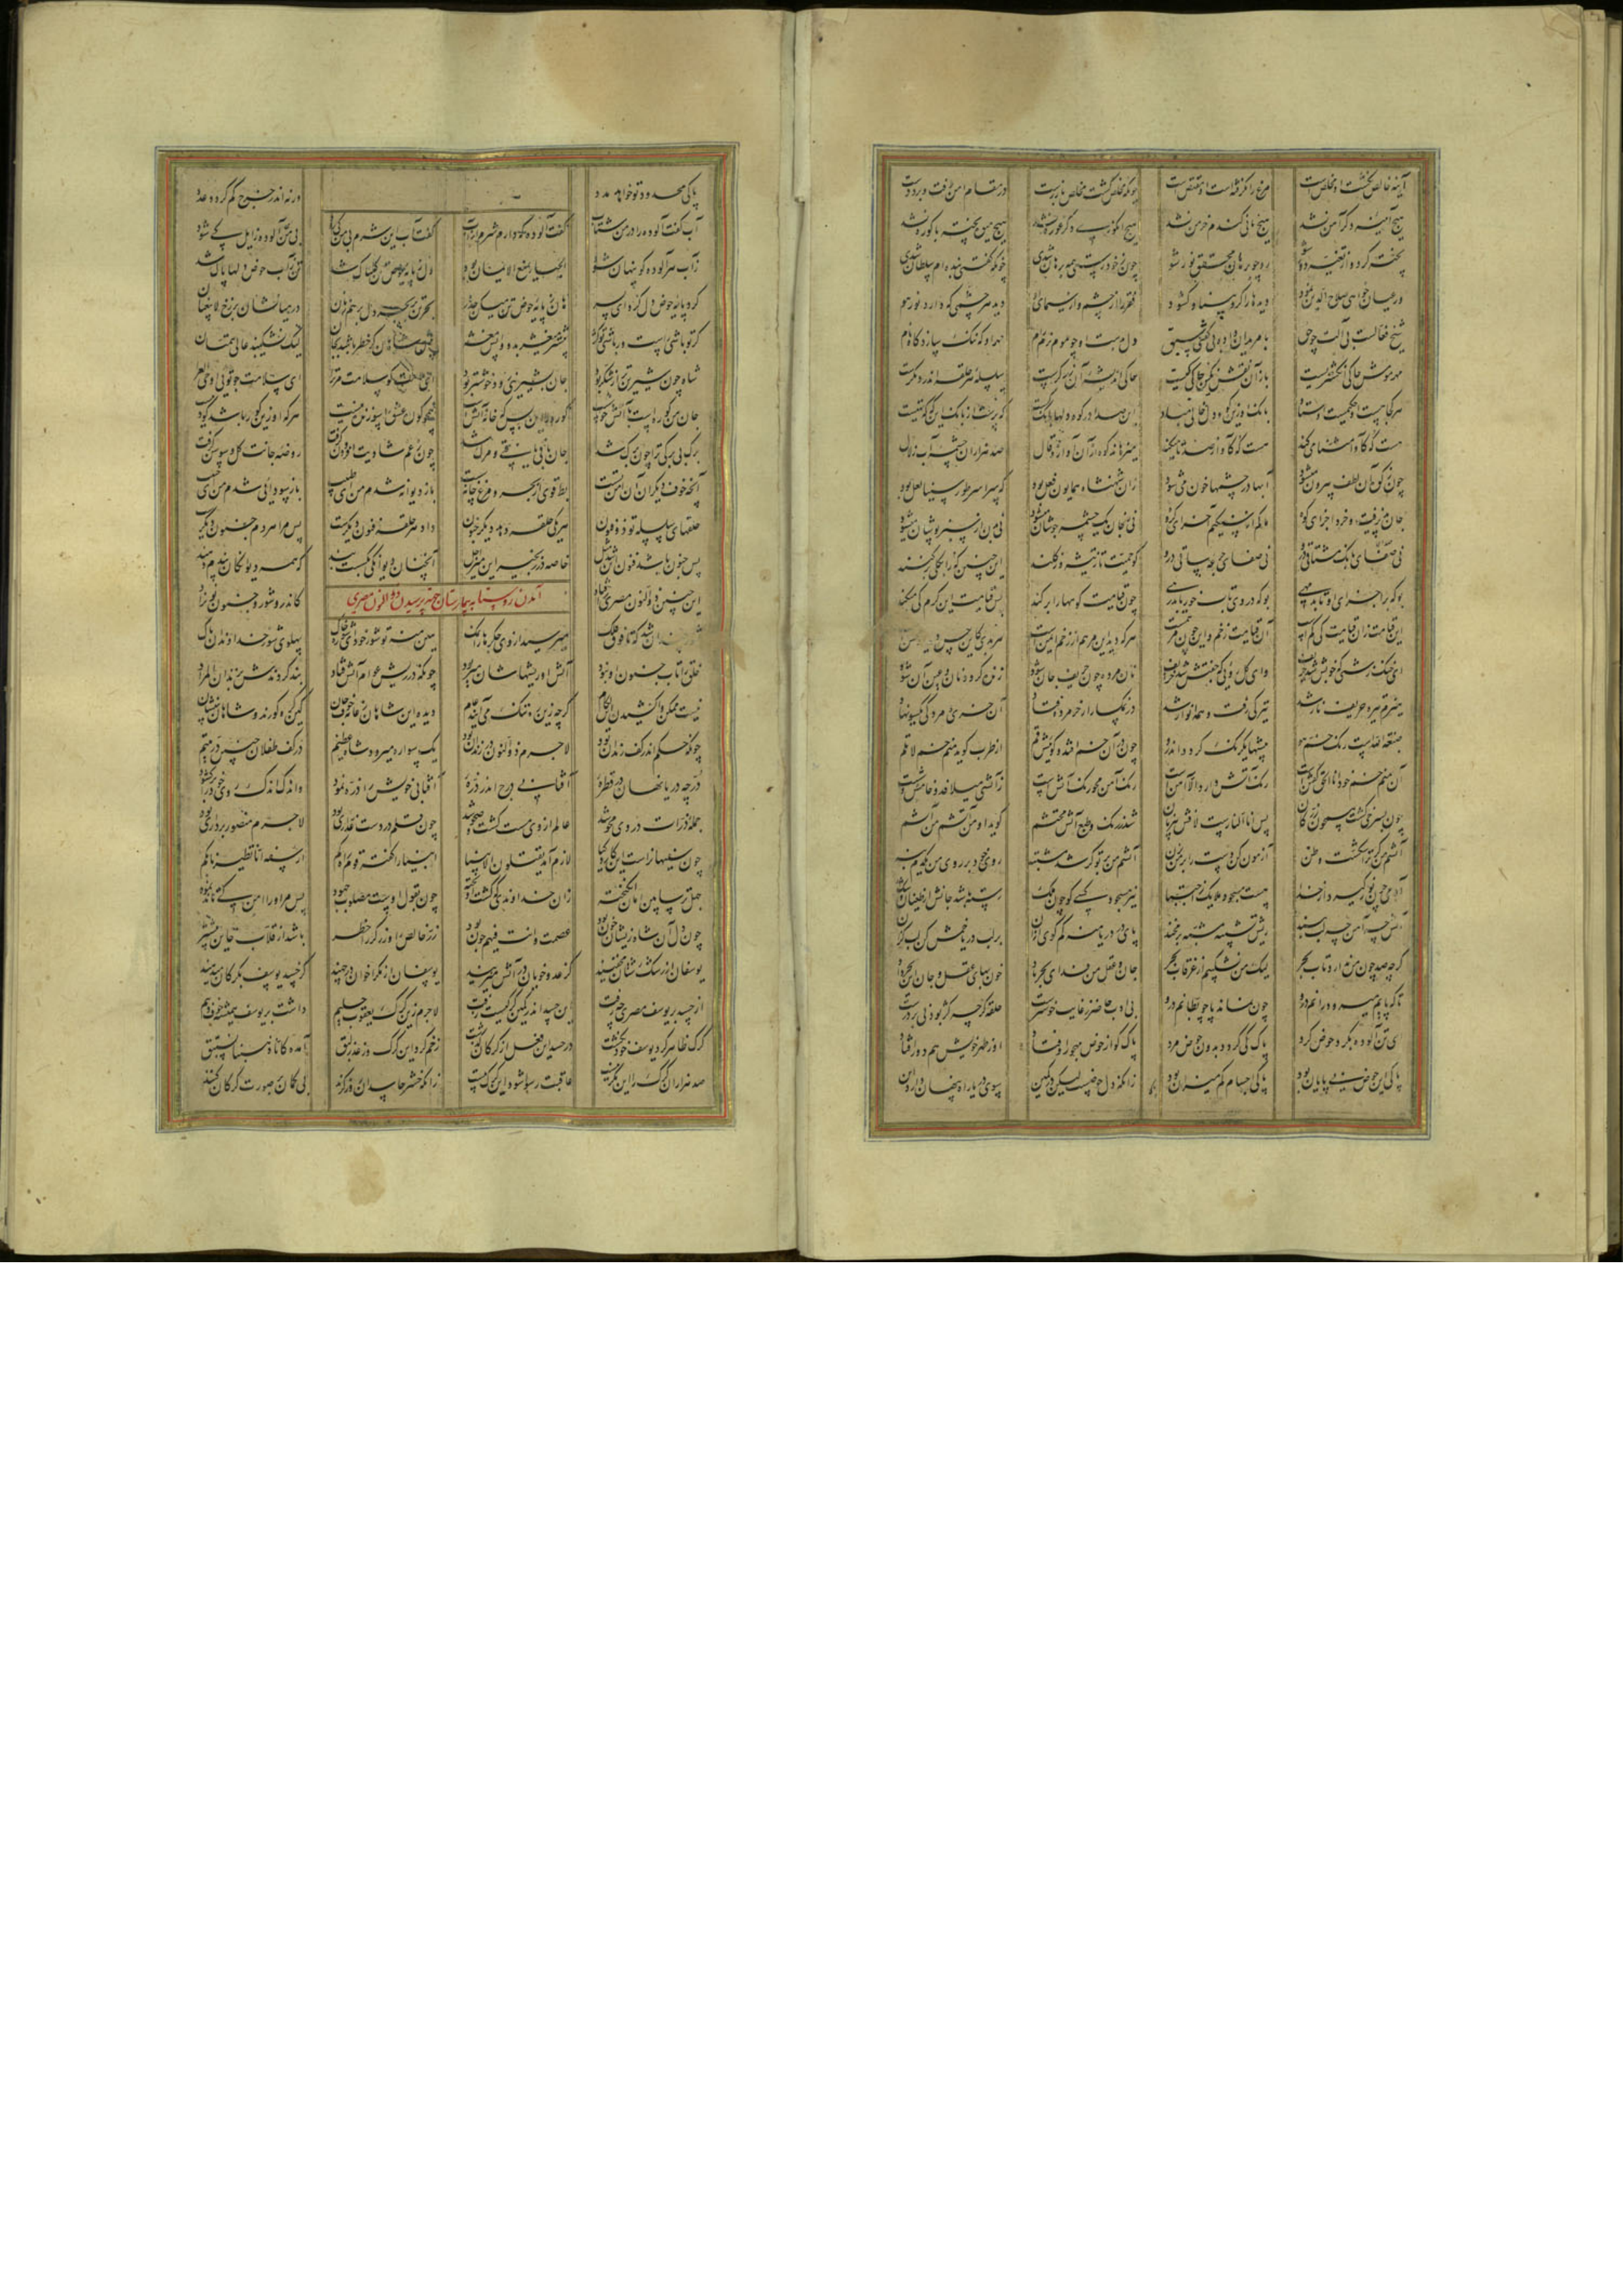 آینه خالص نگشت او مخلص است مرغ را نگرفته است او مقنص است چونکه مخلص گشت مخلص باز رست در مقام امن رفت و برد دست
هیچ آیینه دگر آهن نشد هیچ نانی گندم خرمن نشد هیچ انگوری دگر غوره نشد هیچ میوه پخته با کوره نشد
پخته گرد و از تغیر دور شو رو چو برهان محقق نور شو چون ز خود رستی همه برهان شدی چونکه گفتی بنده ام سلطان شدی
ور عیان خواهی صلاح الدین نمود دیدها را کرد بینا و گشود فقر را از چشم و از سیمای او دید هر چشمی که دارد نور هو
شیخ فعالست بی آلت چو حق با مریدان داده بی گفتی سبق دل بدست او چو موم نرم رام مهر او گه ننگ سازد گاه نام
مهر مومش حاکی انگشتریست باز آن نقش نگین حاکی کیست حاکی اندیشه آن زرگرست سلسله هر حلقه اندر دیگرست
این صدا در کوه دلها بانگ کیست که پرست از بانگ این که گه تهیست
هر کجا هست او حکیمست اوستاد بانگ او زین کوه دل خالی مباد
هست که کآوا مثنا می کند هست که کآواز صدتا میکند میزهاند کوه از آن آواز و قال صد هزاران چشمه آب زلال
چون ز که آن لطف بیرون میشود آبها در چشمها خون می شود زان شهنشاه همایون نعل بود که سراسر طور سینا لعل بود
جان پذیرفت و خرد اجزای کوه ما کم از سنگیم آخر ای گروه نی ز جان یک چشمه جوشان میشود نی بدن از سبزپوشان میشود
نی صدای بانگ مشتاقی درو نی صفای جرعه ساقی درو کو حمیت تا ز تیشه وز کلند این چنین که را بکلی برکنند
بوکه بر اجزای او تابد مهی بوکه در وی تاب مه یابد رهی چون قیامت کوهها را بر کند پس قیامت این کرم کی میکند
این قیامت زان قیامت کی کم است آن قیامت زخم و این چون مرهم است هر که دید این مرهم از زخم ایمن است هر بدی کاین حسن دید او محسن است
ای خنک زشتی که خوبش شد حریف وای گل رویی که جفتش شد خریف نان مرده چون حریف جان شود زنده گردد نان و عین آن شود
هیزم تیره حریف نار شد تیرگی رفت و همه انوار شد در نمکسار ار خر مرده فتاد آن خری و مردگی یکسو نهاد
صبغة الله هست رنگ خم هو پیسها یکرنگ گردد اندرو چون در آن خم افتد و گوییش قم از طرب گوید منم خم لاتلم
آن منم خم خود انا الحق گفتن است رنگ آتش دارد الا آهن است رنگ آهن محو رنگ آتش است ز آتشی میلافد و خامش وش است
چون بسرخی گشت همچون زر کان پس انا النارست لافش بی زبان شد ز رنگ و طبع آتش محتشم گوید او من آتشم من آتشم
آتشم من گر ترا شکست و ظن آزمون کن دست را بر من بزن آتشم من بر تو گر شد مشتبه روی خود بر روی من یکدم بنه
آدمی چون نور گیرد از خدا هست مسجود ملایک ز اجتبا نیز مسجود کسی کو چون ملک رسته باشد جانش از طغیان و شک
آتش چه آهن چه لب ببند ریش تشبیه مشبه بر مخند پای در دریا منه کم گوی از آن بر لب دریا خمش کن لب گزان
گرچه صد چون من ندارد تاب بحر لیک من نشکیبم از غرقاب بحر جان و عقل من فدای بحر باد خونبهای عقل و جان این بحر داد
تا که پایم میرود رانم درو چون نماند پا چو بطانم درو بی ادب حاضر ز غایب خوشترست حلقه گرچه کژ بود نی بر درست
ای تن آلوده بگرد حوض گرد پاک کی گردد برون حوض مرد پاک کو از حوض مهجور اوفتاد او ز طهر خویش هم دور اوفتاد
پاکی این حوض بی پایان بود پاکی اجسام کم میزان بود زانکه دل حوضست لیکن در کمین سوی دریا راه پنهان دارد این
پاکی محدود تو خواهد مدد ورنه اندر خرج کم گردد عدد
آب گفت آلوده را در من شتاب گفت آلوده که دارم شرم از آب گفت آب این شرم بی من کی رود بی من آلوده زایل کی شود
ز آب هر آلوده کو پنهان شود الحیاء یمنع الایمان بود دل ز پایه حوض تن گلناک شد تن ز آب حوض دلها پاک شد
گرد پایه حوض دل گرد ای پسر هان ز پایه حوض تن میکن حذر بحر تن بر بحر دل بر هم زنان در میانشان برزخ لا یبغیان
گر تو باشی راست ور باشی تو کژ پیشتر میغژ بدو واپس مغژ پیش شاهان گر خطر باشد بجان لیک نشکیبد عالی همتان
شاه چون شیرین تر از شکر بود جان بشیرینی رود خوشتر بود ای ملامت گو سلامت مر ترا ای سلامت جو تویی واهی العری
جان من کوره است با آتش خوش است کوره را این بس که خانه آتش است همچو کوره عشق را سوزیدنیست هر که او زین کور باشد کوره نیست
برگ بی برگی ترا چون برگ شد جان باقی یافتی و مرگ شد چون ز غم شادیت افزودن گرفت روضه جانت گل و سوسن گرفت
آنچه خوف دیگران آن امن تست بط قوی از بحر و مرغ خانه سست باز دیوانه شدم من ای طبیب باز سودائی شدم من ای حبیب
حلقهای سلسله تو ذو فنون هر یکی حلقه دهد دیگر جنون داد هر حلقه فنونی دیگرست پس مرا هر دم جنونی دیگرست
پس جنون باشد فنون این شد مثل خاصه در زنجیر این میر اجل آنچنان دیوانگی بگسست بند که همه دیوانگان پندم دهند
آمدن دوستان به بیمارستان جهت پرسیدن ذوالنون مصری
این چنین ذوالنون مصری را فتاد کاندرو شور و جنون نو بزاد
شور چندان شد که تا فوق فلک میرسید از وی جگرها را نمک هین منه تو شور خود ای شوره خاک پهلوی شور خداوندان پاک
خلق را تاب جنون او نبود آتش او ریشهاشان میربود چونکه در ریش عوام آتش فتاد بند کردندش بزندان المراد
نیست ممکن وا کشیدن این لگام گرچه زین ره تنگ می آیند عام دیده این شاهان ز عامه خوف جان کین گره کورند و شاهان بی نشان
چونکه حکم اندر کف رندان بود لاجرم ذوالنون در زندان بود یک سواره میرود شاه عظیم در کف طفلان چنین در یتیم
در چه دریا نهان در قطره آفتابی درج اندر ذره آفتابی خویش را ذره نمود واندک اندک روی خود را بر گشود
جمله ذرات در وی محو شد عالم از وی مست گشت و صحو شد چون قلم در دست غداری بود لاجرم منصور بر داری بود
چون سفیهانراست این کار و کیا لازم آمد یقتلون الانبیا انبیا را گفته قومی راه گم از سفه انا تطیرنا بکم
جهل ترسا بین امان انگیخته زان خداوندی که گشت آویخته چون بقول اوست مصلوب جهود پس مر او را امن کی تاند نمود
چون دل آن شاه زیشان خون بود عصمت و انت فیهم چون بود زر خالص را و زرگر را خطر باشد از قلاب خاین بیشتر
یوسفان از رشک زشتان مخفیند کز عدو خوبان در آتش میزیند یوسفان از مکر اخوان در چهند کز حسد یوسف بگرگان میدهند
از حسد بر یوسف مصری چه رفت این حسد اندر کمین گرگیست زفت لاجرم زین گرگ یعقوب حلیم داشت بر یوسف همیشه خوف و بیم
گرگ ظاهر گرد یوسف خود نگشت در حسد این فعل از گرگان گذشت زخم کرد این گرگ وز عذر لبق آمده کانا ذهبنا نستبق
صد هزاران گرگ را این مکر نیست عاقبت رسوا شود این گرگ بیست زانکه حشر حاسدان روز گزند بی گمان بر صورت گرگان کنند